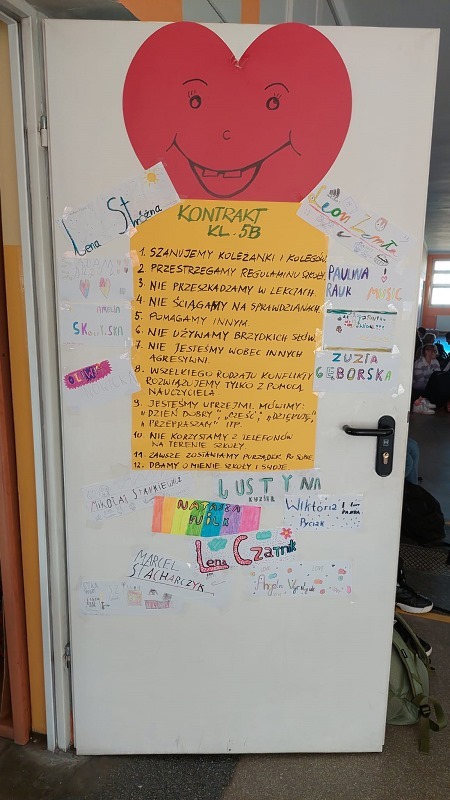 Lena Stróżna
Leon Zemła
KONTRAKT
KL. 5B
1. SZANUJEMY KOLEŻANKI I KOLEGÓW.
2. PRZESTRZEGAMY REGULAMINU SZKOŁY.
3. NIE PRZESZKADZAMY W LEKCJACH.
4. NIE ŚCIĄGAMY NA SPRAWDZIANACH.
5. POMAGAMY INNYM.
6. NIE UŻYWAMY BRZYDKICH SŁÓW.
7. NIE JESTEŚMY WOBEC INNYCH
AGRESYWNI.
8. WSZELKIEGO RODZAJU KONFLIKTY
ROZWIĄZUJEMY TYLKO Z POMOCĄ
NAUCZYCIELA
9. JESTEŚMY UPRZEJMI. MÓWIMY:
"DZIEŃ DOBRY", "CZEŚĆ", "DZIĘKUJĘ",
"PRZEPRASZAM" ITP.
10. NIE KORZYSTAMY Z TELEFONÓW
NA TERENIE SZKOŁY.
11. ZAWSZE ZOSTAWIAMY PORZĄDEK PO SOBIE.
12. DBAMY O MIENIE SZKOŁY I SWOJE.
AMELIA
PAULINA
RAUK MUSIC
ZUZIA
GĘBORSKA
MIKOŁAJ
JUSTYNA
NATASZA
WILK
Wiktoria
Lena Czarnik
MARCEL
STACHARCZYK